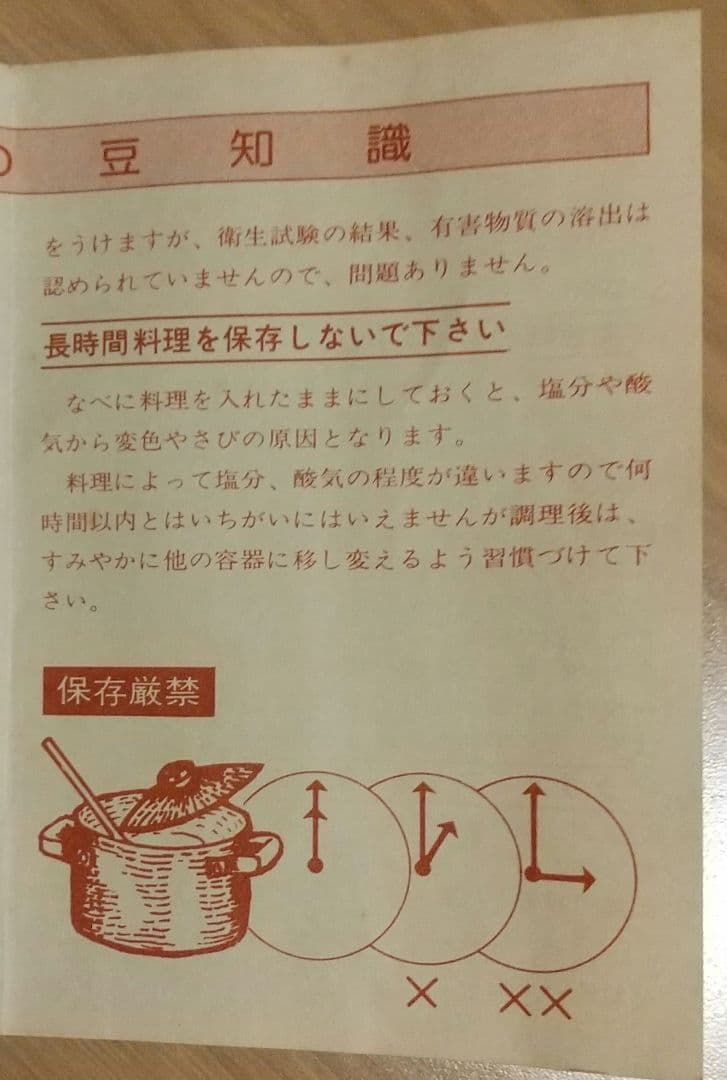 の豆知識
をうけますが、衛生試験の結果、有害物質の溶出は
認められていませんので、問題ありません。
長時間料理を保存しないで下さい
なべに料理を入れたままにしておくと、塩分や酸
気から変色やさびの原因となります。
料理によって塩分、酸気の程度が違いますので何
時間以内とはいちがいにはいえませんが調理後は、
すみやかに他の容器に移し変えるよう習慣づけて下
さい。
保存厳禁
× ××